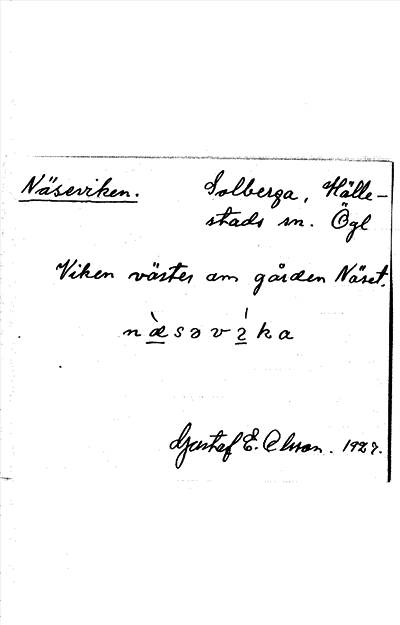 Näseviken. Solberga, Hälle-
stads sn. Ögl
Viken väster om gården Näset.
næ̀səvíka
Gustaf E. Olsson. 1927.